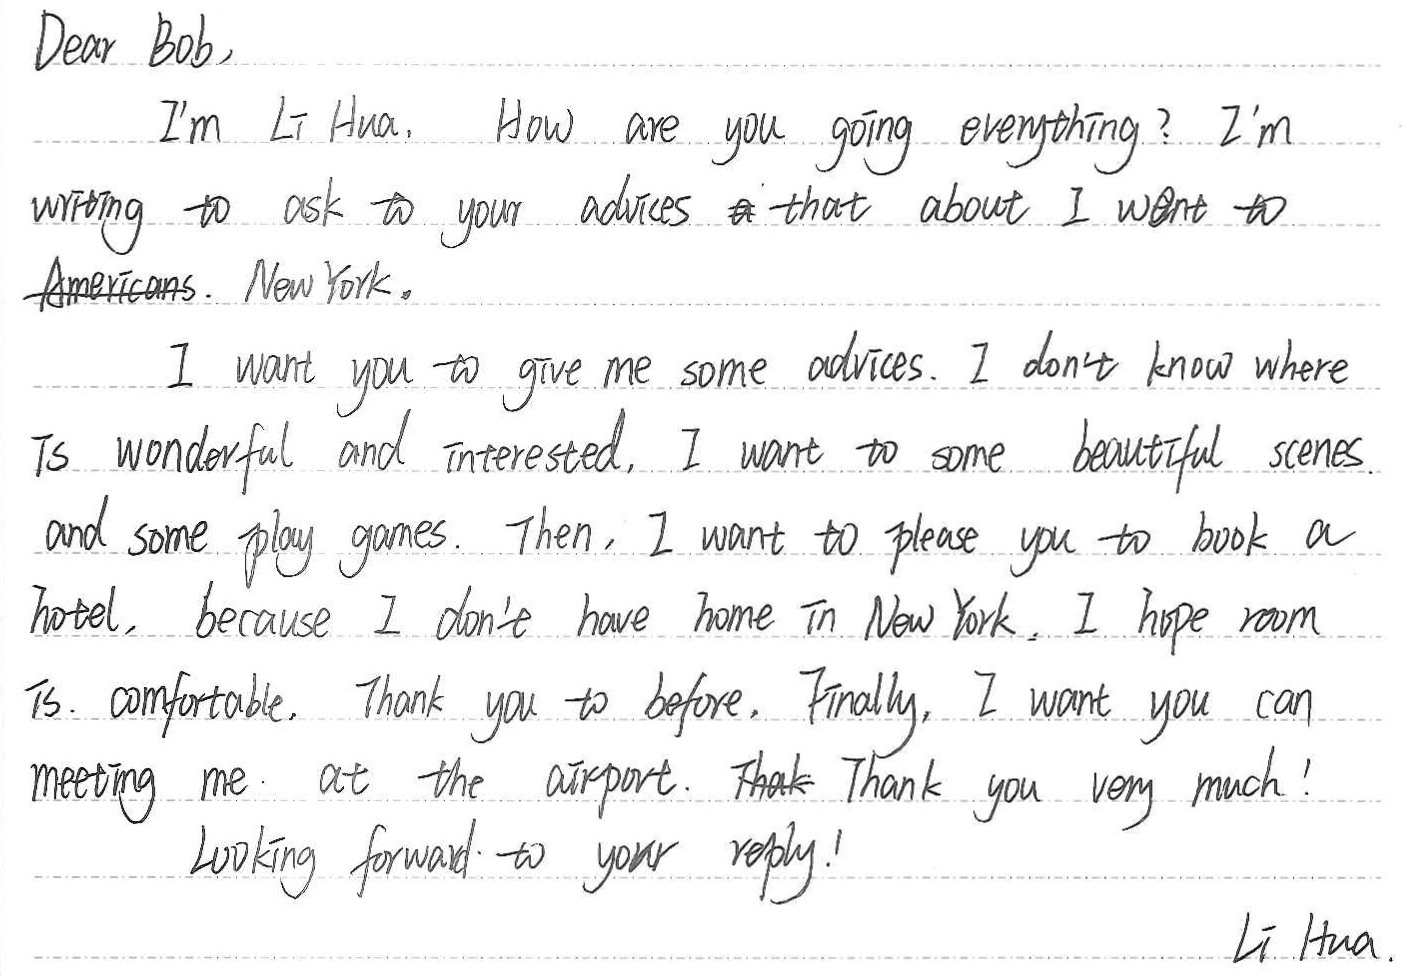 Dear Bob,
I'm Li Hua. How are you going everything? I'm
writing to ask to your advices that about I went to
Americans. New York.
I want you to give me some advices. I don't know where
is wonderful and interested. I want to some beautiful scenes.
and some play games. Then, I want to please you to book a
hotel, because I don't have home in New York. I hope room
is. comfortable. Thank you to before. Finally, I want you can
meeting me. at the airport. Thak Thank you very much!
Looking forward. to your reply!
Li Hua.